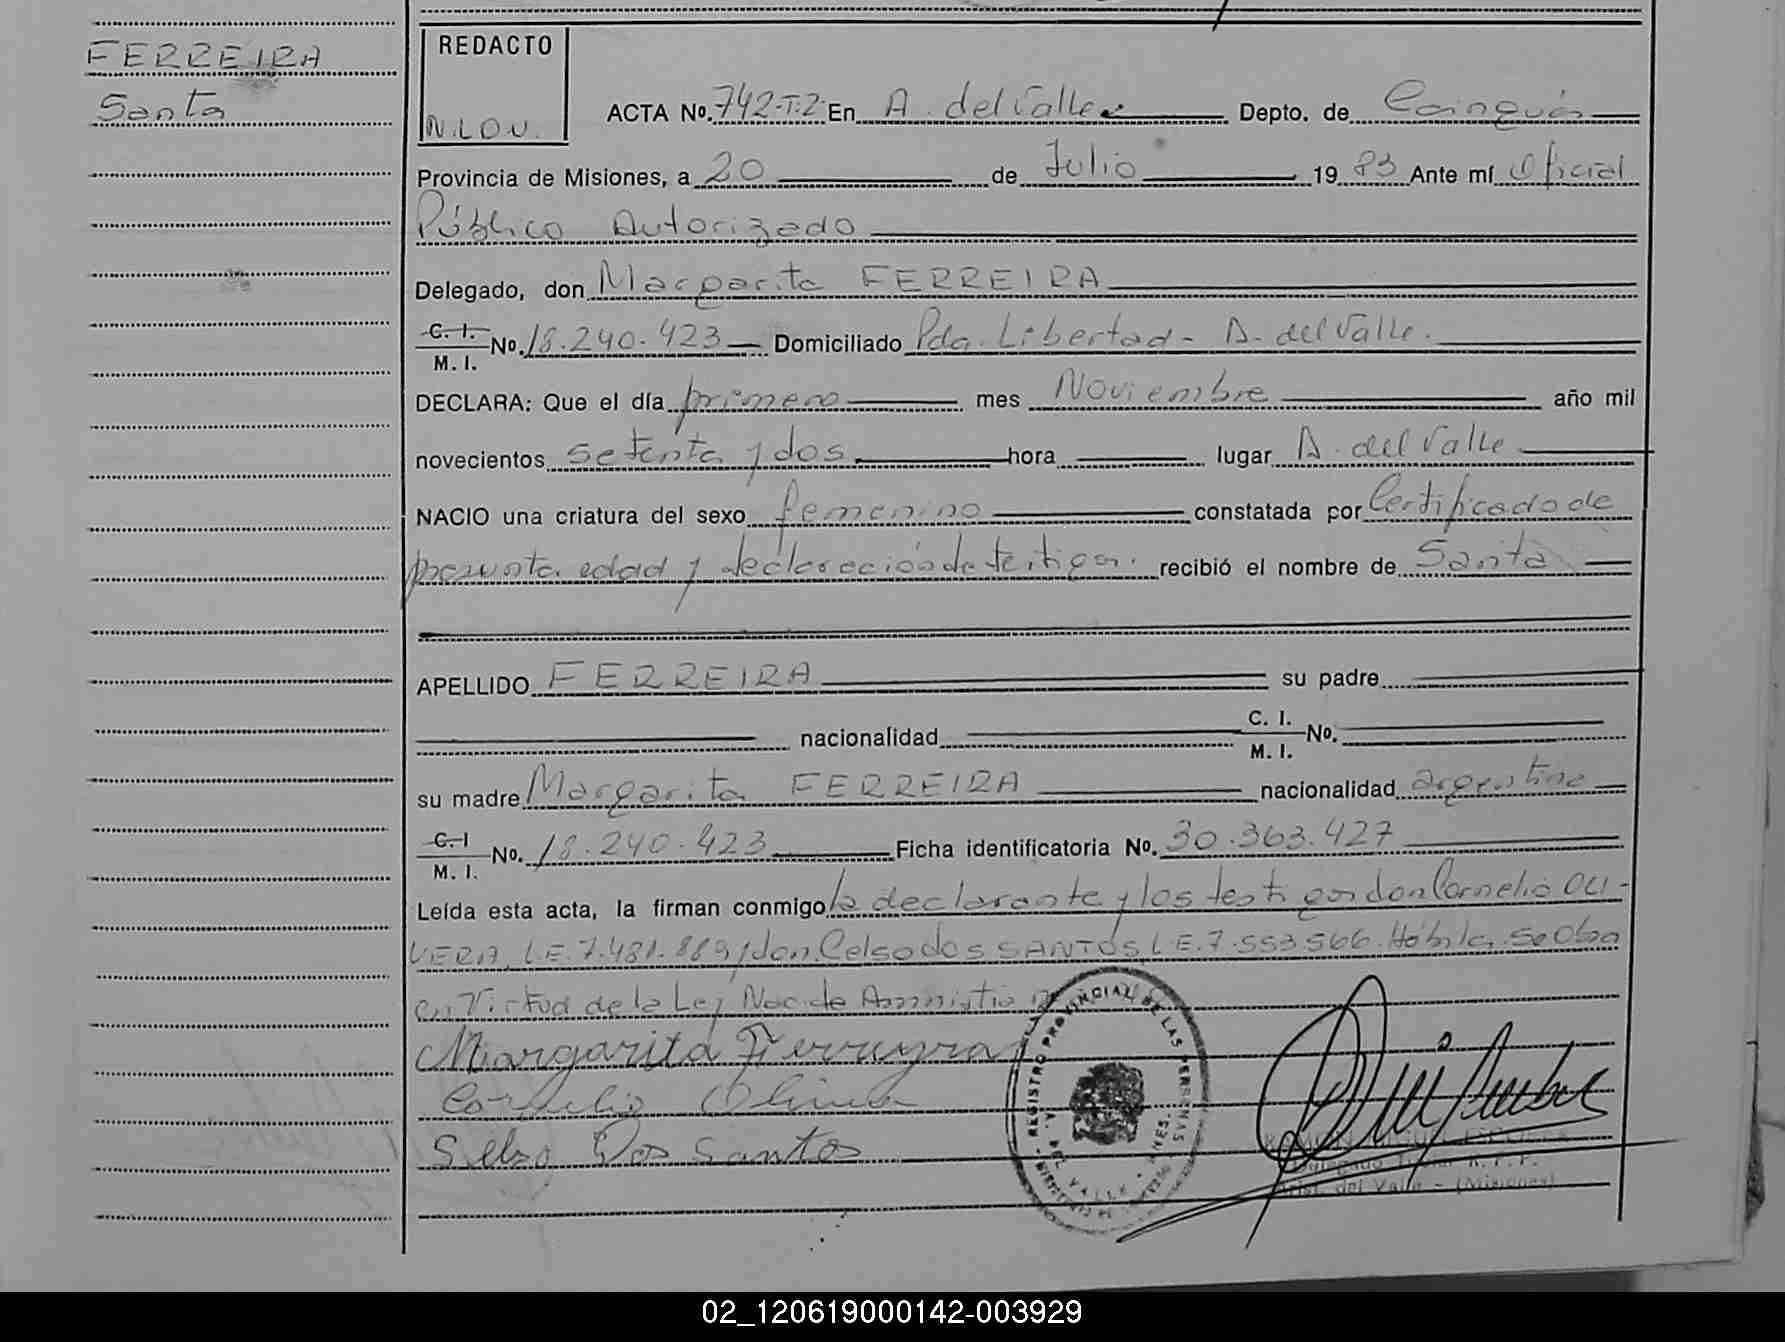 FERREIRA
Santa
REDACTO
N.L.O.V.
ACTA No. 742-T.2- En A. del Valle Depto. de Cainguás
Provincia de Misiones, a 20 de Julio 19 83 Ante mí Oficial
Público Autorizado
Delegado, don Margarita FERREIRA
C. I. M. I. No. 18.240.423 Domiciliado Pda. Libertad - A. del Valle.
DECLARA: Que el día primero mes Noviembre año mil
novecientos setenta y dos hora lugar A. del Valle
NACIO una criatura del sexo femenino constatada por Certificado de
presunta edad y declaración de testigos. recibió el nombre de Santa
APELLIDO FERREIRA su padre
nacionalidad C. I. M. I. No.
su madre Margarita FERREIRA nacionalidad argentina
C. I M. I. No. 18.240.423 Ficha identificatoria No. 30.363.427
Leída esta acta, la firman conmigo la declarante y los testigos don Cornelio OLI-
VERA, L.E. 7.481.889 y don Celso dos SANTOS, L.E. 7.553.566. Hábiles. Se Obra
en Virtud de la Ley Nac. de Amnistía
Margarita Ferreyra
Cornelio Olivera
Selso Dos Santos
REGISTRO PROVINCIAL DE LAS PERSONAS
A. DEL VALLE - MNES.
Delegado Titular R. P. P.
Arist. del Valle - (Misiones)
02_120619000142-003929